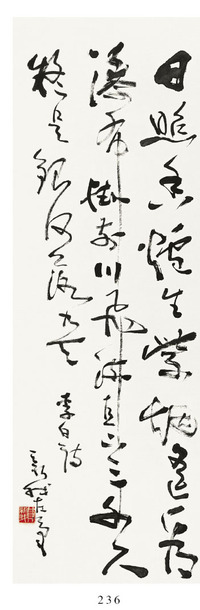 日照香爐生紫烟遙看
瀑布掛前川飛流直下三千尺
疑是銀河落九天
李白詩
236